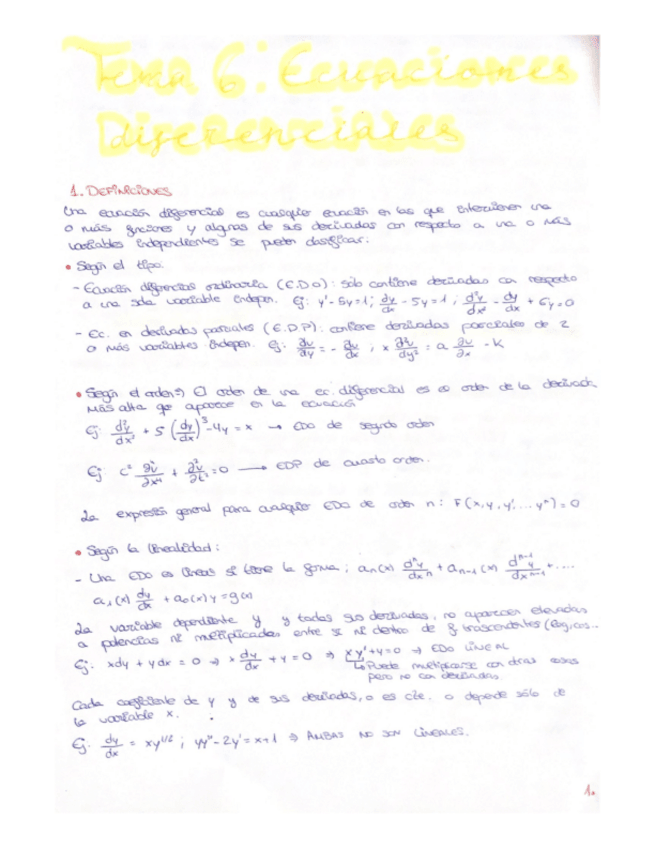 Tema 6: Ecuaciones
Diferenciales
1. DEFINICIONES
Una ecuación diferencial es cualquier ecuación en las que intervienen una
o más funciones y algunas de sus derivadas con respecto a una o más
variables independientes se pueden clasificar:
• Según el tipo:
- Ecuación diferencial ordinaria (E.D.O): sólo contiene derivadas con respecto
a una sola variable indepen. Ej: y' - 5y = 1; dy/dx - 5y = 1; d²y/dx² - dy/dx + 6y = 0
- Ec. en derivadas parciales (E.D.P): contiene derivadas parciales de 2
o más variables indepen. Ej: ∂u/∂y = - ∂v/∂x; x ∂²u/∂y² = a ∂u/∂x - K
• Según el orden ⇒ El orden de una ec. diferencial es el orden de la derivada
más alta que aparece en la ecuación
Ej: d²y/dx² + 5 (dy/dx)³ - 4y = x → EDO de segundo orden
Ej: c² ∂⁴u/∂x⁴ + ∂²u/∂t² = 0 → EDP de cuarto orden.
La expresión general para cualquier EDO de orden n: F(x, y, y', ... yⁿ) = 0
• Según la linealidad:
- Una EDO es lineal si tiene la forma; aₙ(x) dⁿy/dxⁿ + aₙ₋₁(x) dⁿ⁻¹y/dxⁿ⁻¹ + ....
a₁(x) dy/dx + a₀(x) y = g(x)
La variable dependiente y, y todas sus derivadas, no aparecen elevadas
a potencias ni multiplicadas entre si ni dentro de f trascendentes (
Ej: xdy + ydx = 0 ⇒ x dy/dx + y = 0 ⇒ xy' + y = 0 → EDO LINEAL
↳ Puede multiplicarse con otras cosas
pero no con derivadas.
Cada coeficiente de y y de sus derivadas, o es cte. o depende sólo de
la variable x.
Ej: dy/dx = xy^1/2; yy'' - 2y' = x + 1 ⇒ AMBAS NO SON LINEALES.
1.